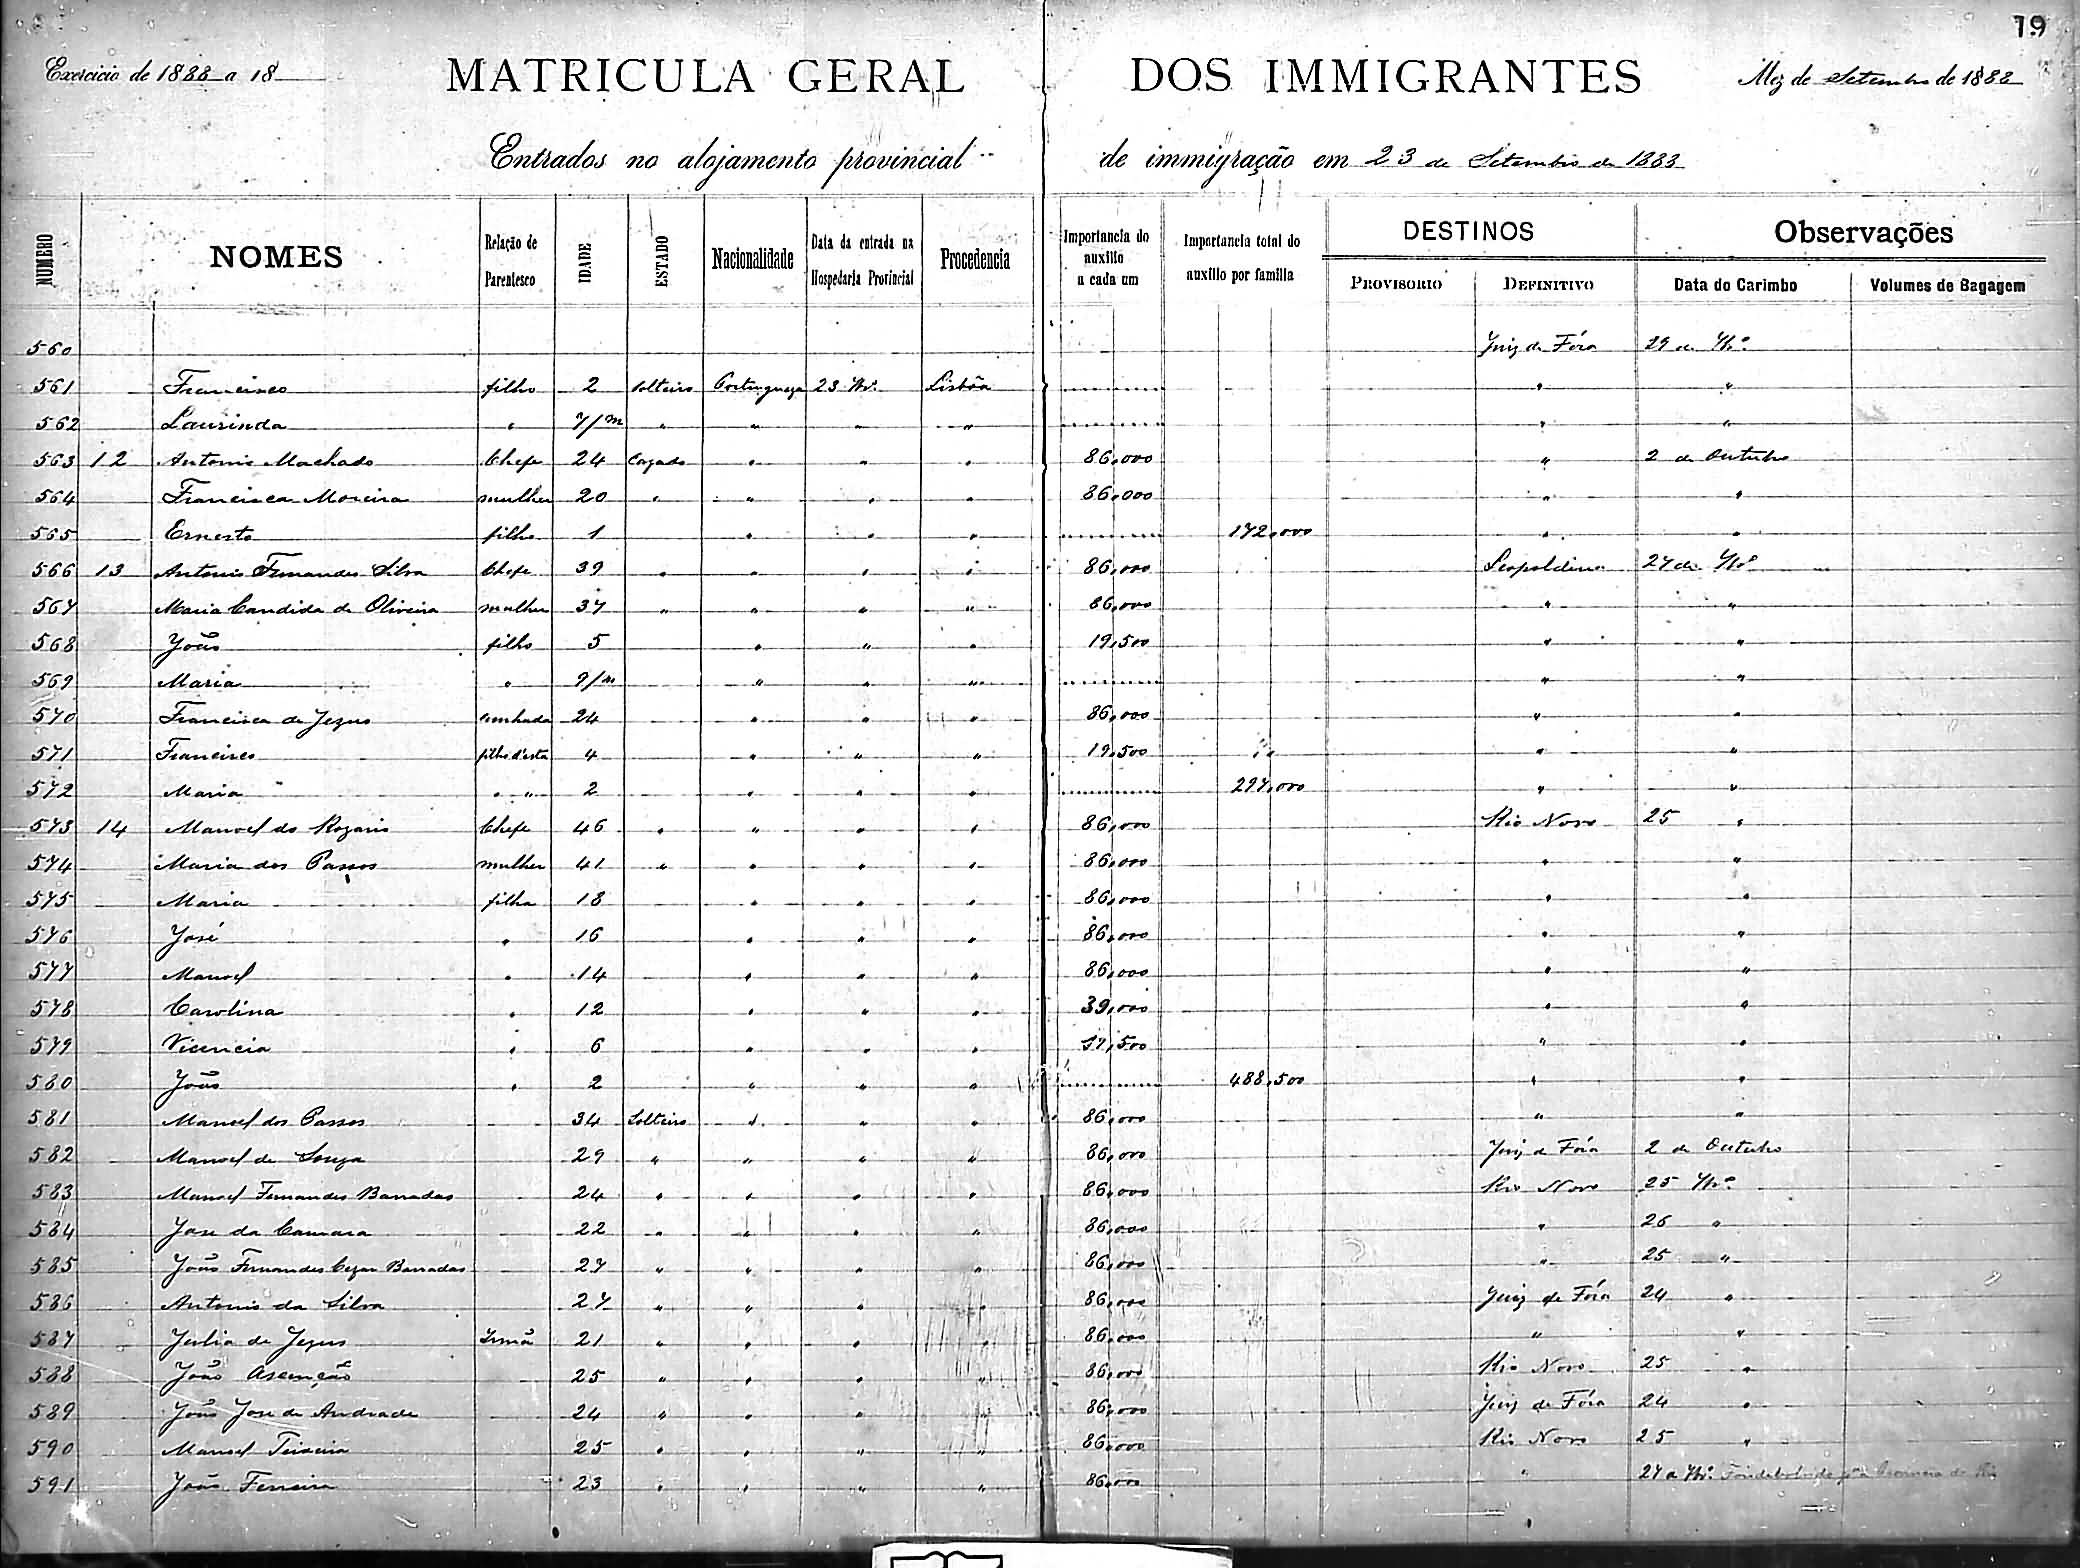 19
Exercicio de 1888 a 18
MATRICULA GERAL DOS IMMIGRANTES
Mez de Setembro de 1888
Entrados no alojamento provincial de immigração em 23 de Setembro de 1888
NUMERO NOMES Relação de Parentesco IDADE ESTADO Nacionalidade Data da entrada na Hospedaria Provincial Procedencia Importancia do auxilio a cada um Importancia total do auxilio por familia DESTINOS PROVISORIO DEFINITIVO Observações Data do Carimbo Volumes de Bagagem
560 Juiz de Fóra 29 de 7bro
561 Francisco filho 2 solteiro Portugueza 23 7bro Lisbôa " "
562 Laurinda " 7/m " " " " " "
563 12 Antonio Machado Chefe 24 Cazado " " " 86,000 " 2 de Outubro
564 Francisca Moreira mulher 20 " " " " 86,000 " "
565 Ernesto filho 1 " " " 172,000 " "
566 13 Antonio Fernandes Silva Chefe 39 " " " " 86,000 Leopoldina 27 de 7bro
567 Maria Candida de Oliveira mulher 37 " " " " 86,000 " "
568 João filho 5 " " " 19,500 " "
569 Maria " 9/m " " " " "
570 Francisca de Jezus cunhada 24 " " " 86,000 " "
571 Francisco filho d'esta 4 " " " 19,500 " "
572 Maria " " 2 " " " 297,000 " "
573 14 Manoel do Rozario Chefe 46 " " " " 86,000 Rio Novo 25 "
574 Maria dos Passos mulher 41 " " " " 86,000 " "
575 Maria filha 18 " " " 86,000 " "
576 José " 16 " " " 86,000 " "
577 Manoel " 14 " " " 86,000 " "
578 Carolina " 12 " " " 39,000 " "
579 Vicencia " 6 " " " ,500 " "
580 João " 2 " " " 488,500 " "
581 Manoel dos Passos 34 Solteiro " " " 86,000 " "
582 Manoel de Souza 29 " " " " 86,000 Juiz de Fóra 2 de Outubro
583 Manoel Fernandes Barradas 24 " " " " 86,000 Rio Novo 25 7bro
584 Jose da Camara 22 " " " " 86,000 " 26 "
585 João Fernandes Cezar Barradas 27 " " " " 86,000 " 25 "
586 Antonio da Silva 27 " " " " 86,000 Juiz de Fóra 24 "
587 Julia de Jezus Irmã 21 " " " " 86,000 " "
588 João Ascenção 25 " " " " 86,000 Rio Novo 25 "
589 João Jose de Andrade 24 " " " " 86,000 Juiz de Fóra 24 "
590 Manoel Teixeira 25 " " " " 86,000 Rio Novo 25 "
591 João Ferreira 23 " " " " 86,000 " 27 a 7bro Provincia do Rio